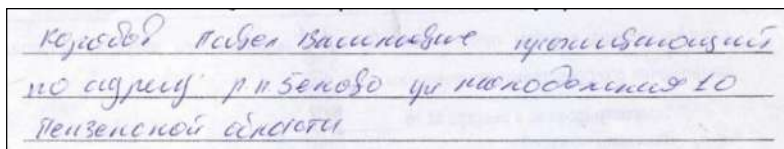 Коробов Павел Васильевич проживающий
по адресу р п Беково ул 10
Пензенской области